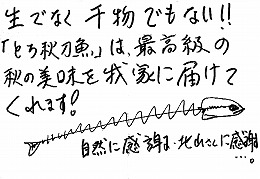 生でなく干物でもない!!
「とろ秋刀魚」は、最高級の
秋の美味を我家に届けて
くれます!
自然に感謝、北のさちに感謝
…。